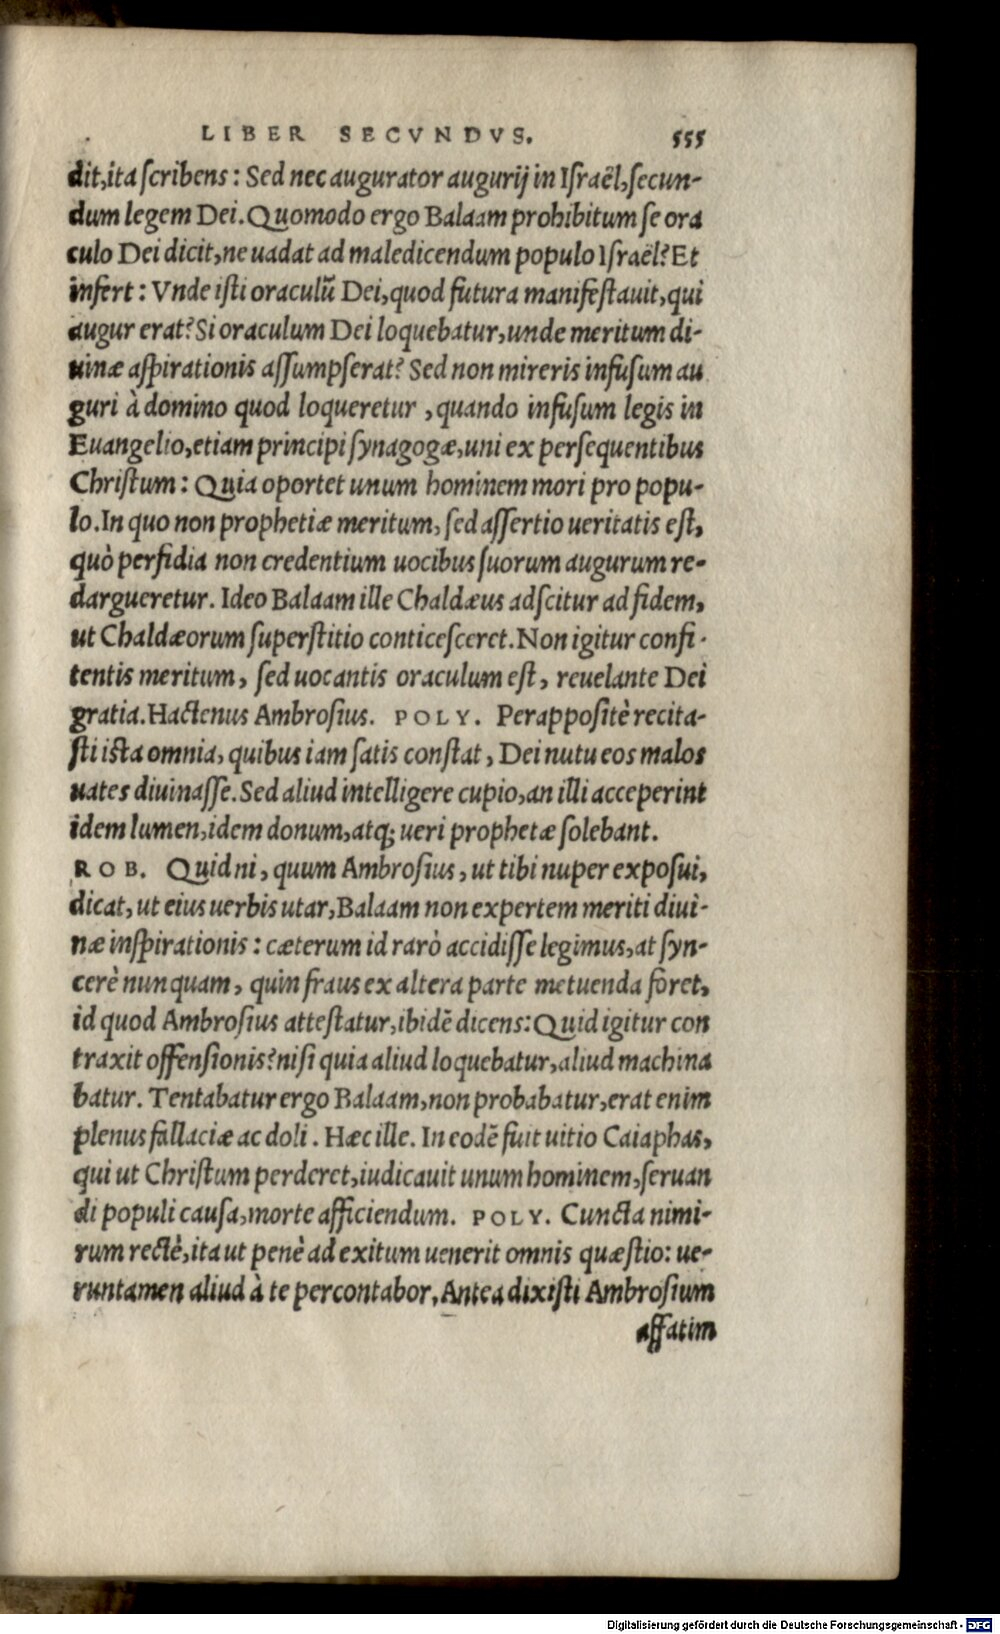 LIBER SECVNDVS. 555
dit,ita ſcribens: Sed nec augurator augurij in Iſraël,ſecun-
dum legem Dei. Quomodo ergo Balaam prohibitum ſe ora
culo Dei dicit,ne uadat ad maledicendum populo Iſraël? Et
infert: Vnde iſti oraculũ Dei,quod futura manifeſtauit,qui
augur erat? Si oraculum Dei loquebatur,unde meritum di-
uinæ aſpirationis aſſumpſerat? Sed non mireris infuſum au
guri à domino quod loqueretur , quando infuſum legis in
Euangelio,etiam principi ſynagogæ,uni ex perſequentibus
Chriſtum: Quia oportet unum hominem mori pro popu-
lo. In quo non prophetiæ meritum, ſed aſſertio ueritatis eſt,
quò perfidia non credentium uocibus ſuorum augurum re-
dargueretur. Ideo Balaam ille Chaldæus adſcitur ad fidem,
ut Chaldæorum ſuperſtitio conticeſceret. Non igitur confi-
tentis meritum, ſed uocantis oraculum eſt, reuelante Dei
gratia. Hactenus Ambroſius. POLY. Perappoſitè recita-
ſti iſta omnia, quibus iam ſatis conſtat, Dei nutu eos malos
uates diuinaſſe. Sed aliud intelligere cupio,an illi acceperint
idem lumen,idem donum,atq; ueri prophetæ ſolebant.
ROB. Quid ni, quum Ambroſius, ut tibi nuper expoſui,
dicat, ut eius uerbis utar, Balaam non expertem meriti diui-
næ inſpirationis: cæterum id rarò accidiſſe legimus, at ſyn-
cerè nunquam, quin fraus ex altera parte metuenda foret,
id quod Ambroſius atteſtatur, ibidẽ dicens: Quid igitur con
traxit offenſionis? niſi quia aliud loquebatur,aliud machina
batur. Tentabatur ergo Balaam, non probabatur, erat enim
plenus fallaciæ ac doli. Hæc ille. In eodẽ fuit uitio Caiaphas,
qui ut Chriſtum perderet, iudicauit unum hominem, ſeruan
di populi cauſa, morte afficiendum. POLY. Cuncta nimi-
rum rectè, ita ut penè ad exitum uenerit omnis quæſtio: ue-
runtamen aliud à te percontabor, Antea dixiſti Ambroſium
affatim
Digitalisierung gefördert durch die Deutsche Forschungsgemeinschaft - DFG